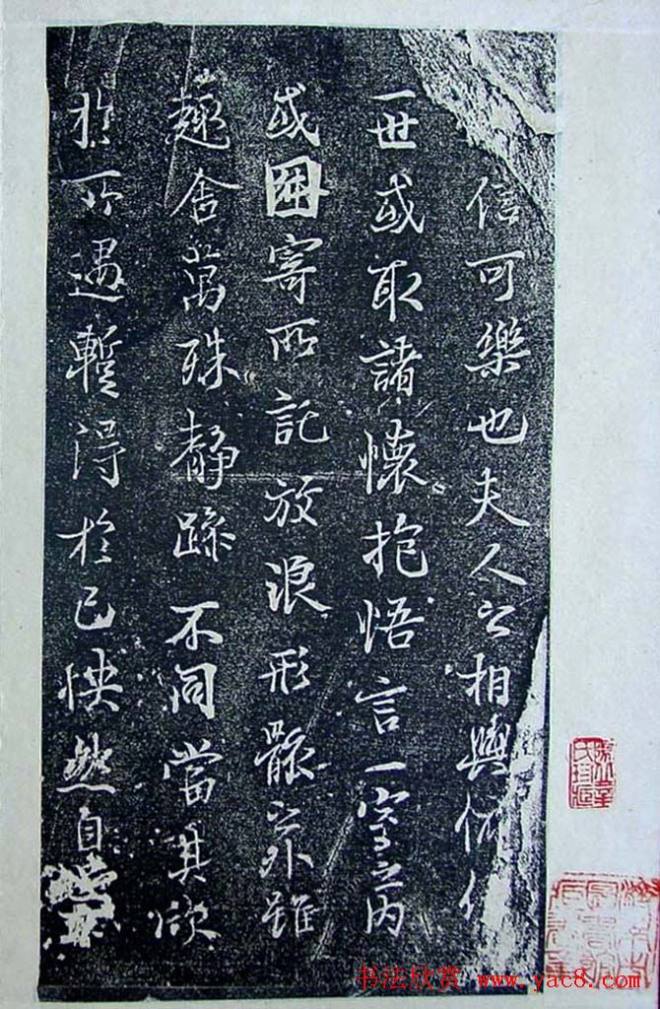 信可樂也夫人之相與俯仰
一世或取諸懷抱悟言一室之内
或因寄所託放浪形骸之外雖
趣舍萬殊靜躁不同當其欣
於所遇暫得於己快然自
书法欣赏 www.yac8.com